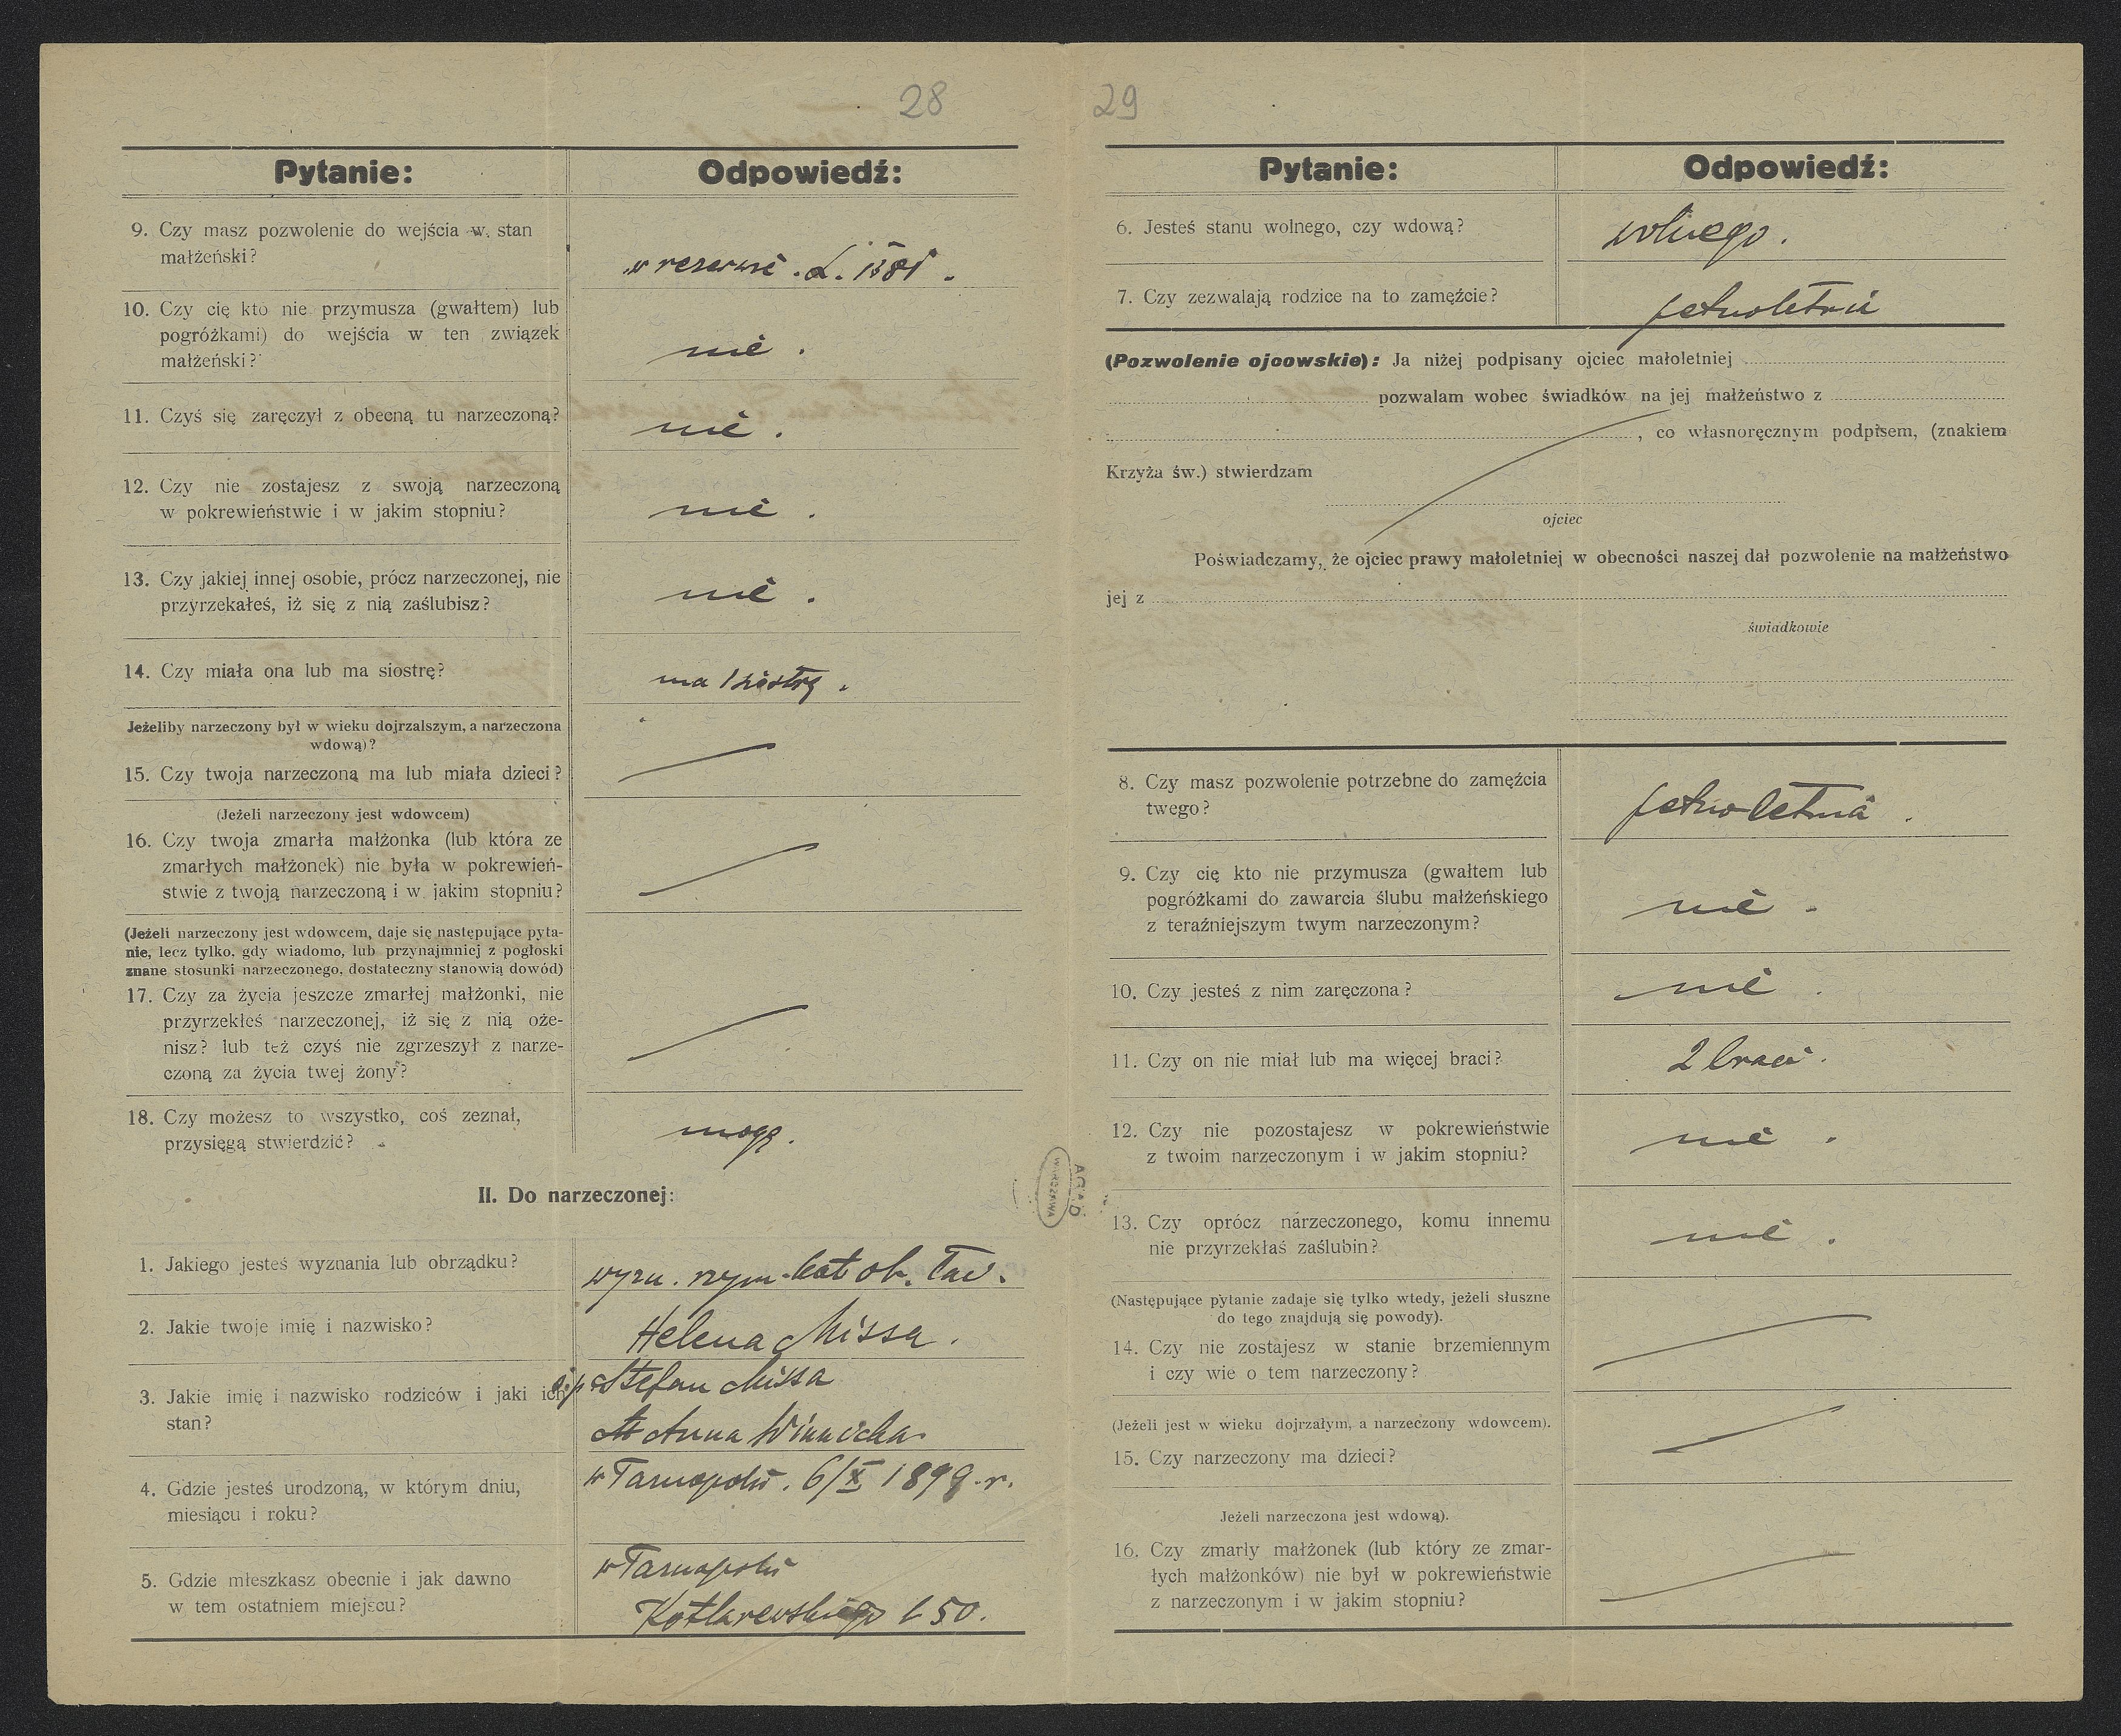 28
Pytanie:
Odpowiedź:
9. Czy masz pozwolenie do wejścia w stan
małżeński?
w reserwie. L. 1381.
10. Czy cię kto nie przymusza (gwałtem) lub
pogróżkami) do wejścia w ten związek
małżeński?
nie.
11. Czyś się zaręczył z obecną tu narzeczoną?
nie.
12. Czy nie zostajesz z swoją narzeczoną
w pokrewieństwie i w jakim stopniu?
nie.
13. Czy jakiej innej osobie, prócz narzeczonej, nie
przyrzekałeś, iż się z nią zaślubisz?
nie.
14. Czy miała ona lub ma siostrę?
ma 1 siostrę.
Jeżeliby narzeczony był w wieku dojrzalszym, a narzeczona
wdową)?
15. Czy twoja narzeczoną ma lub miała dzieci?
(Jeżeli narzeczony jest wdowcem)
16. Czy twoja zmarła małżonka (lub która ze
zmarłych małżonek) nie była w pokrewień-
stwie z twoją narzeczoną i w jakim stopniu?
(Jeżeli narzeczony jest wdowcem, daje się następujące pyta-
nie, lecz tylko, gdy wiadomo, lub przynajmniej z pogłoski
znane stosunki narzeczonego, dostateczny stanowią dowód)
17. Czy za życia jeszcze zmarłej małżonki, nie
przyrzekłeś narzeczonej, iż się z nią oże-
nisz? lub też czyś nie zgrzeszył z narze-
czoną za życia twej żony?
18. Czy możesz to wszystko, coś zeznał,
przysięgą stwierdzić?
mogę.
II. Do narzeczonej:
1. Jakiego jesteś wyznania lub obrządku?
wyzn. rzym-kat ob. łac.
2. Jakie twoje imię i nazwisko?
Helena Missa.
3. Jakie imię i nazwisko rodziców i jaki ich
stan?
ś.p. Stefan Missa
Anna Winnicka.
4. Gdzie jesteś urodzoną, w którym dniu,
miesiącu i roku?
w Tarnopolu. 6/X 1899. r.
5. Gdzie mieszkasz obecnie i jak dawno
w tem ostatniem miejscu?
w Tarnopolu
Kotlarewskiego l. 50.
AGAD
WARSZAWA
29
Pytanie:
Odpowiedź:
6. Jesteś stanu wolnego, czy wdową?
wolnego.
7. Czy zezwalają rodzice na to zamęźcie?
pełnoletnia
(Pozwolenie ojcowskie): Ja niżej podpisany ojciec małoletniej
pozwalam wobec świadków na jej małżeństwo z
, co własnoręcznym podpisem, (znakiem
Krzyża św.) stwierdzam
ojciec
Poświadczamy, że ojciec prawy małoletniej w obecności naszej dał pozwolenie na małżeństwo
jej z
świadkowie
8. Czy masz pozwolenie potrzebne do zamęźcia
twego?
pełnoletnia.
9. Czy cię kto nie przymusza (gwałtem lub
pogróżkami do zawarcia ślubu małżeńskiego
z teraźniejszym twym narzeczonym?
nie.
10. Czy jesteś z nim zaręczona?
nie.
11. Czy on nie miał lub ma więcej braci?
2 braci.
12. Czy nie pozostajesz w pokrewieństwie
z twoim narzeczonym i w jakim stopniu?
nie.
13. Czy oprócz narzeczonego, komu innemu
nie przyrzekłaś zaślubin?
nie.
(Następujące pytanie zadaje się tylko wtedy, jeżeli słuszne
do tego znajdują się powody).
14. Czy nie zostajesz w stanie brzemiennym
i czy wie o tem narzeczony?
(Jeżeli jest w wieku dojrzałym, a narzeczony wdowcem).
15. Czy narzeczony ma dzieci?
Jeżeli narzeczona jest wdową).
16. Czy zmarły małżonek (lub który ze zmar-
łych małżonków) nie był w pokrewieństwie
z narzeczonym i w jakim stopniu?